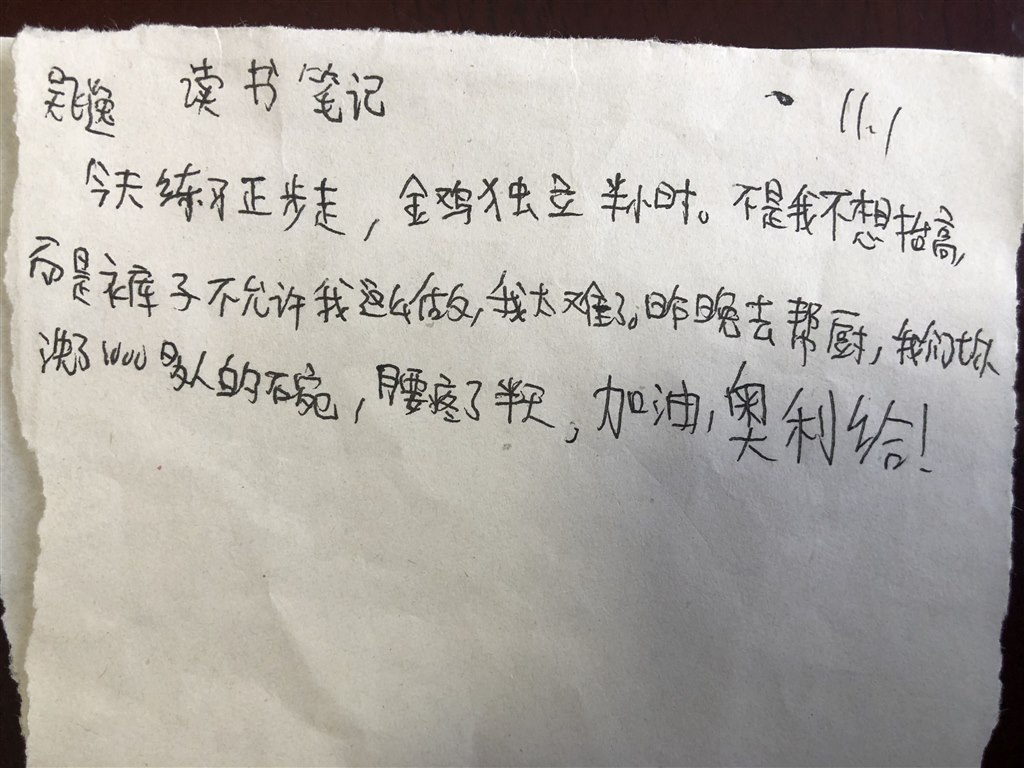 吴逸 读书笔记 11.1
今天练习正步走，金鸡独立半小时。不是我不想抬高，
而是裤子不允许我这么做，我太难了。昨晚去帮厨，我们
洗了1000多人的碗，腰疼了半天，加油，奥利给！